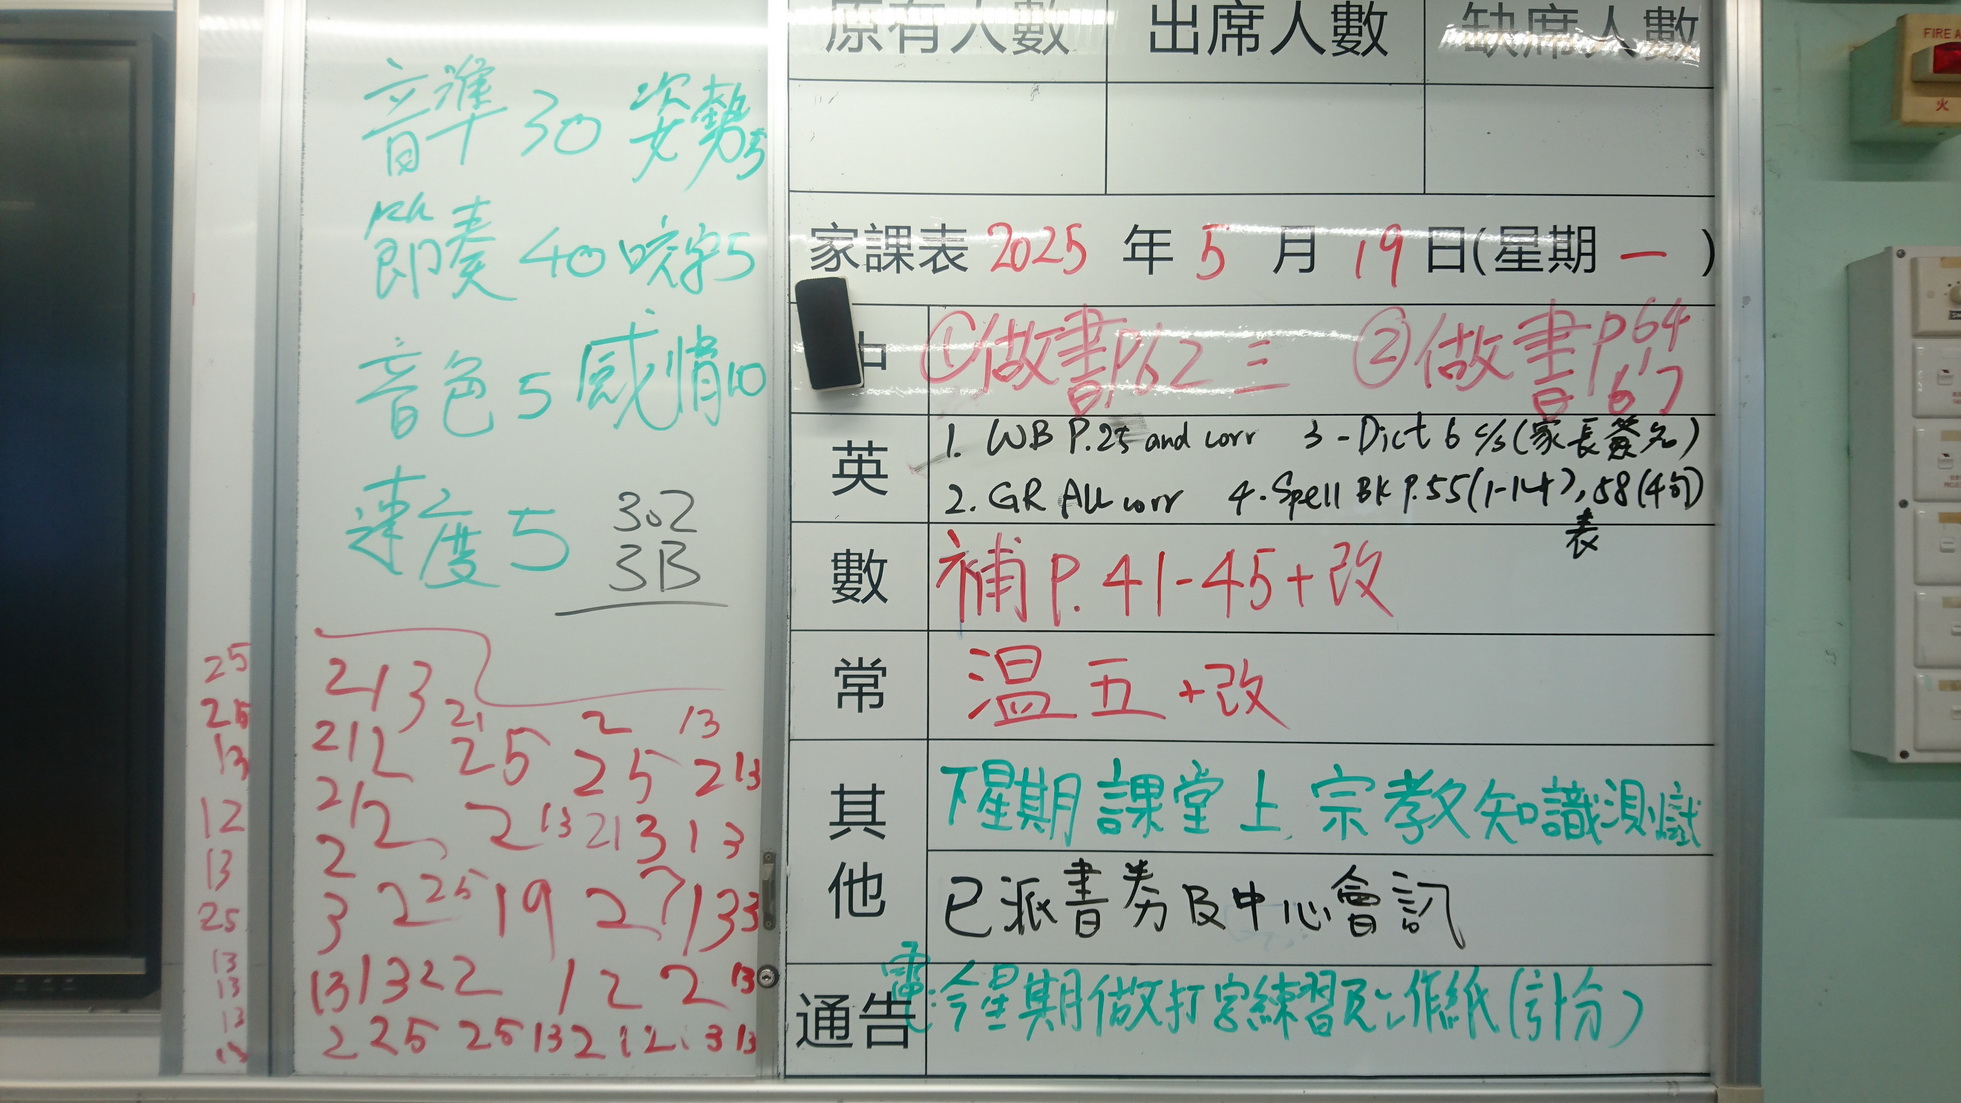 音準 30 姿勢5
節奏 40 咬字5
音色 5 感情10
速度 5
302
3B
25
25
13
12
13
25
13
13
13
13
213
21 2 13
212 25 25 213
212 2 13 21 3 1 3
2
3 2 25 19 2 7 133
131322 1 2 2 13
2 25 25 13 2 12 13 13
原有人數 出席人數 缺席人數
家課表 2025 年 5 月 19 日(星期 一 )
中 ①做書P62 三 ②做書P64, 67
英 1. WB P.25 and corr 3 - Dict 6 c/s (家長簽名)
2. GR All corr 4. Spell BK P.55(1-14), 58(4句)
表
數 補 P. 41-45+改
常 温 五 +改
其他 下星期課堂上宗教知識測試
已派書券及中心會訊
通告 電: 今星期做打字練習及工作紙(計分)
FIRE A
火